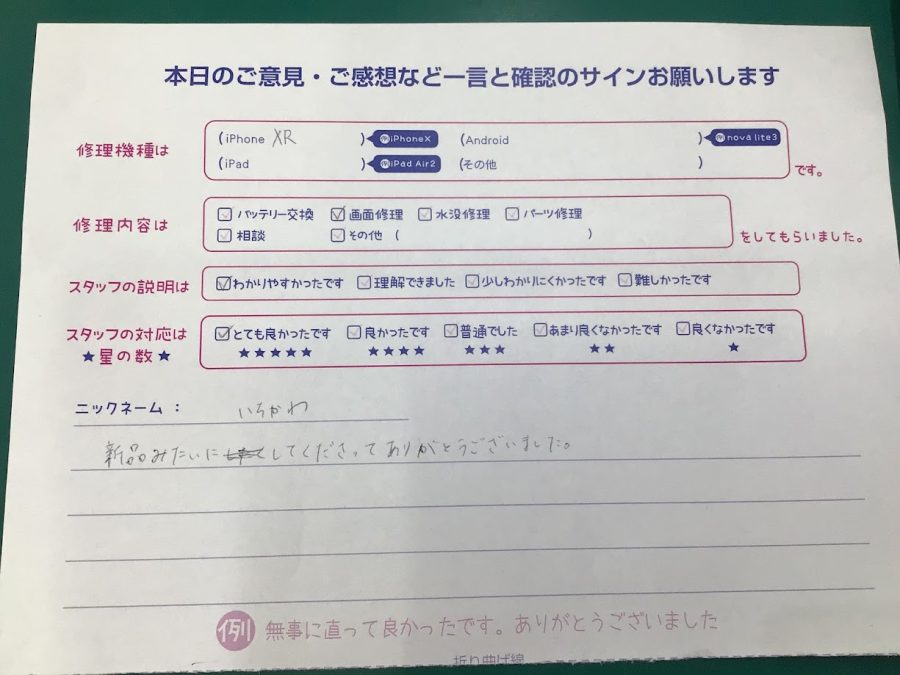 本日のご意見・ご感想など一言と確認のサインお願いします
修理機種は
(iPhone XR ) 例iPhoneX (Android ) 例nova lite3
(iPad ) 例iPad Air2 (その他 )
です。
修理内容は
バッテリー交換 画面修理 水没修理 パーツ修理
相談 その他 ( )
をしてもらいました。
スタッフの説明は
わかりやすかったです 理解できました 少しわかりにくかったです 難しかったです
スタッフの対応は
とても良かったです 良かったです 普通でした あまり良くなかったです 良くなかったです
★星の数★ ★★★★★ ★★★★ ★★★ ★★ ★
ニックネーム： いちかわ
新品みたいにしてくださってありがとうございました。
例 無事に直って良かったです。ありがとうございました
折り曲げ線